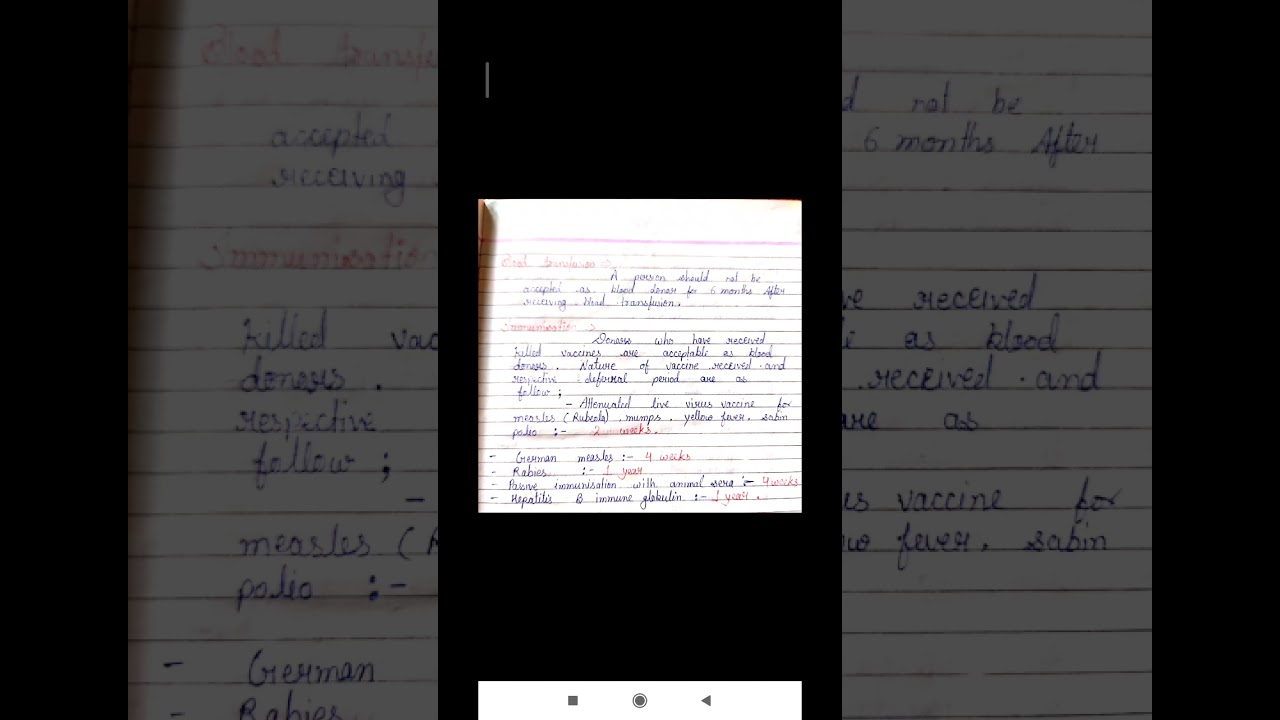 Blood transfusion :-
A person should not be
accepted as blood donor for 6 months After
receiving blood transfusion.
Immunisation :-
Donors who have received
killed vaccines are acceptable as blood
donors. Nature of vaccine received and
respective deferral period are as
follow;
- Attenuated live virus vaccine for
measles (Rubeola), mumps, yellow fever, sabin
polio :- 2 weeks.
- German measles :- 4 weeks
- Rabies :- 1 year
- Passive immunisation with animal sera :- 4 weeks
- Hepatitis B immune globulin :- 1 year.